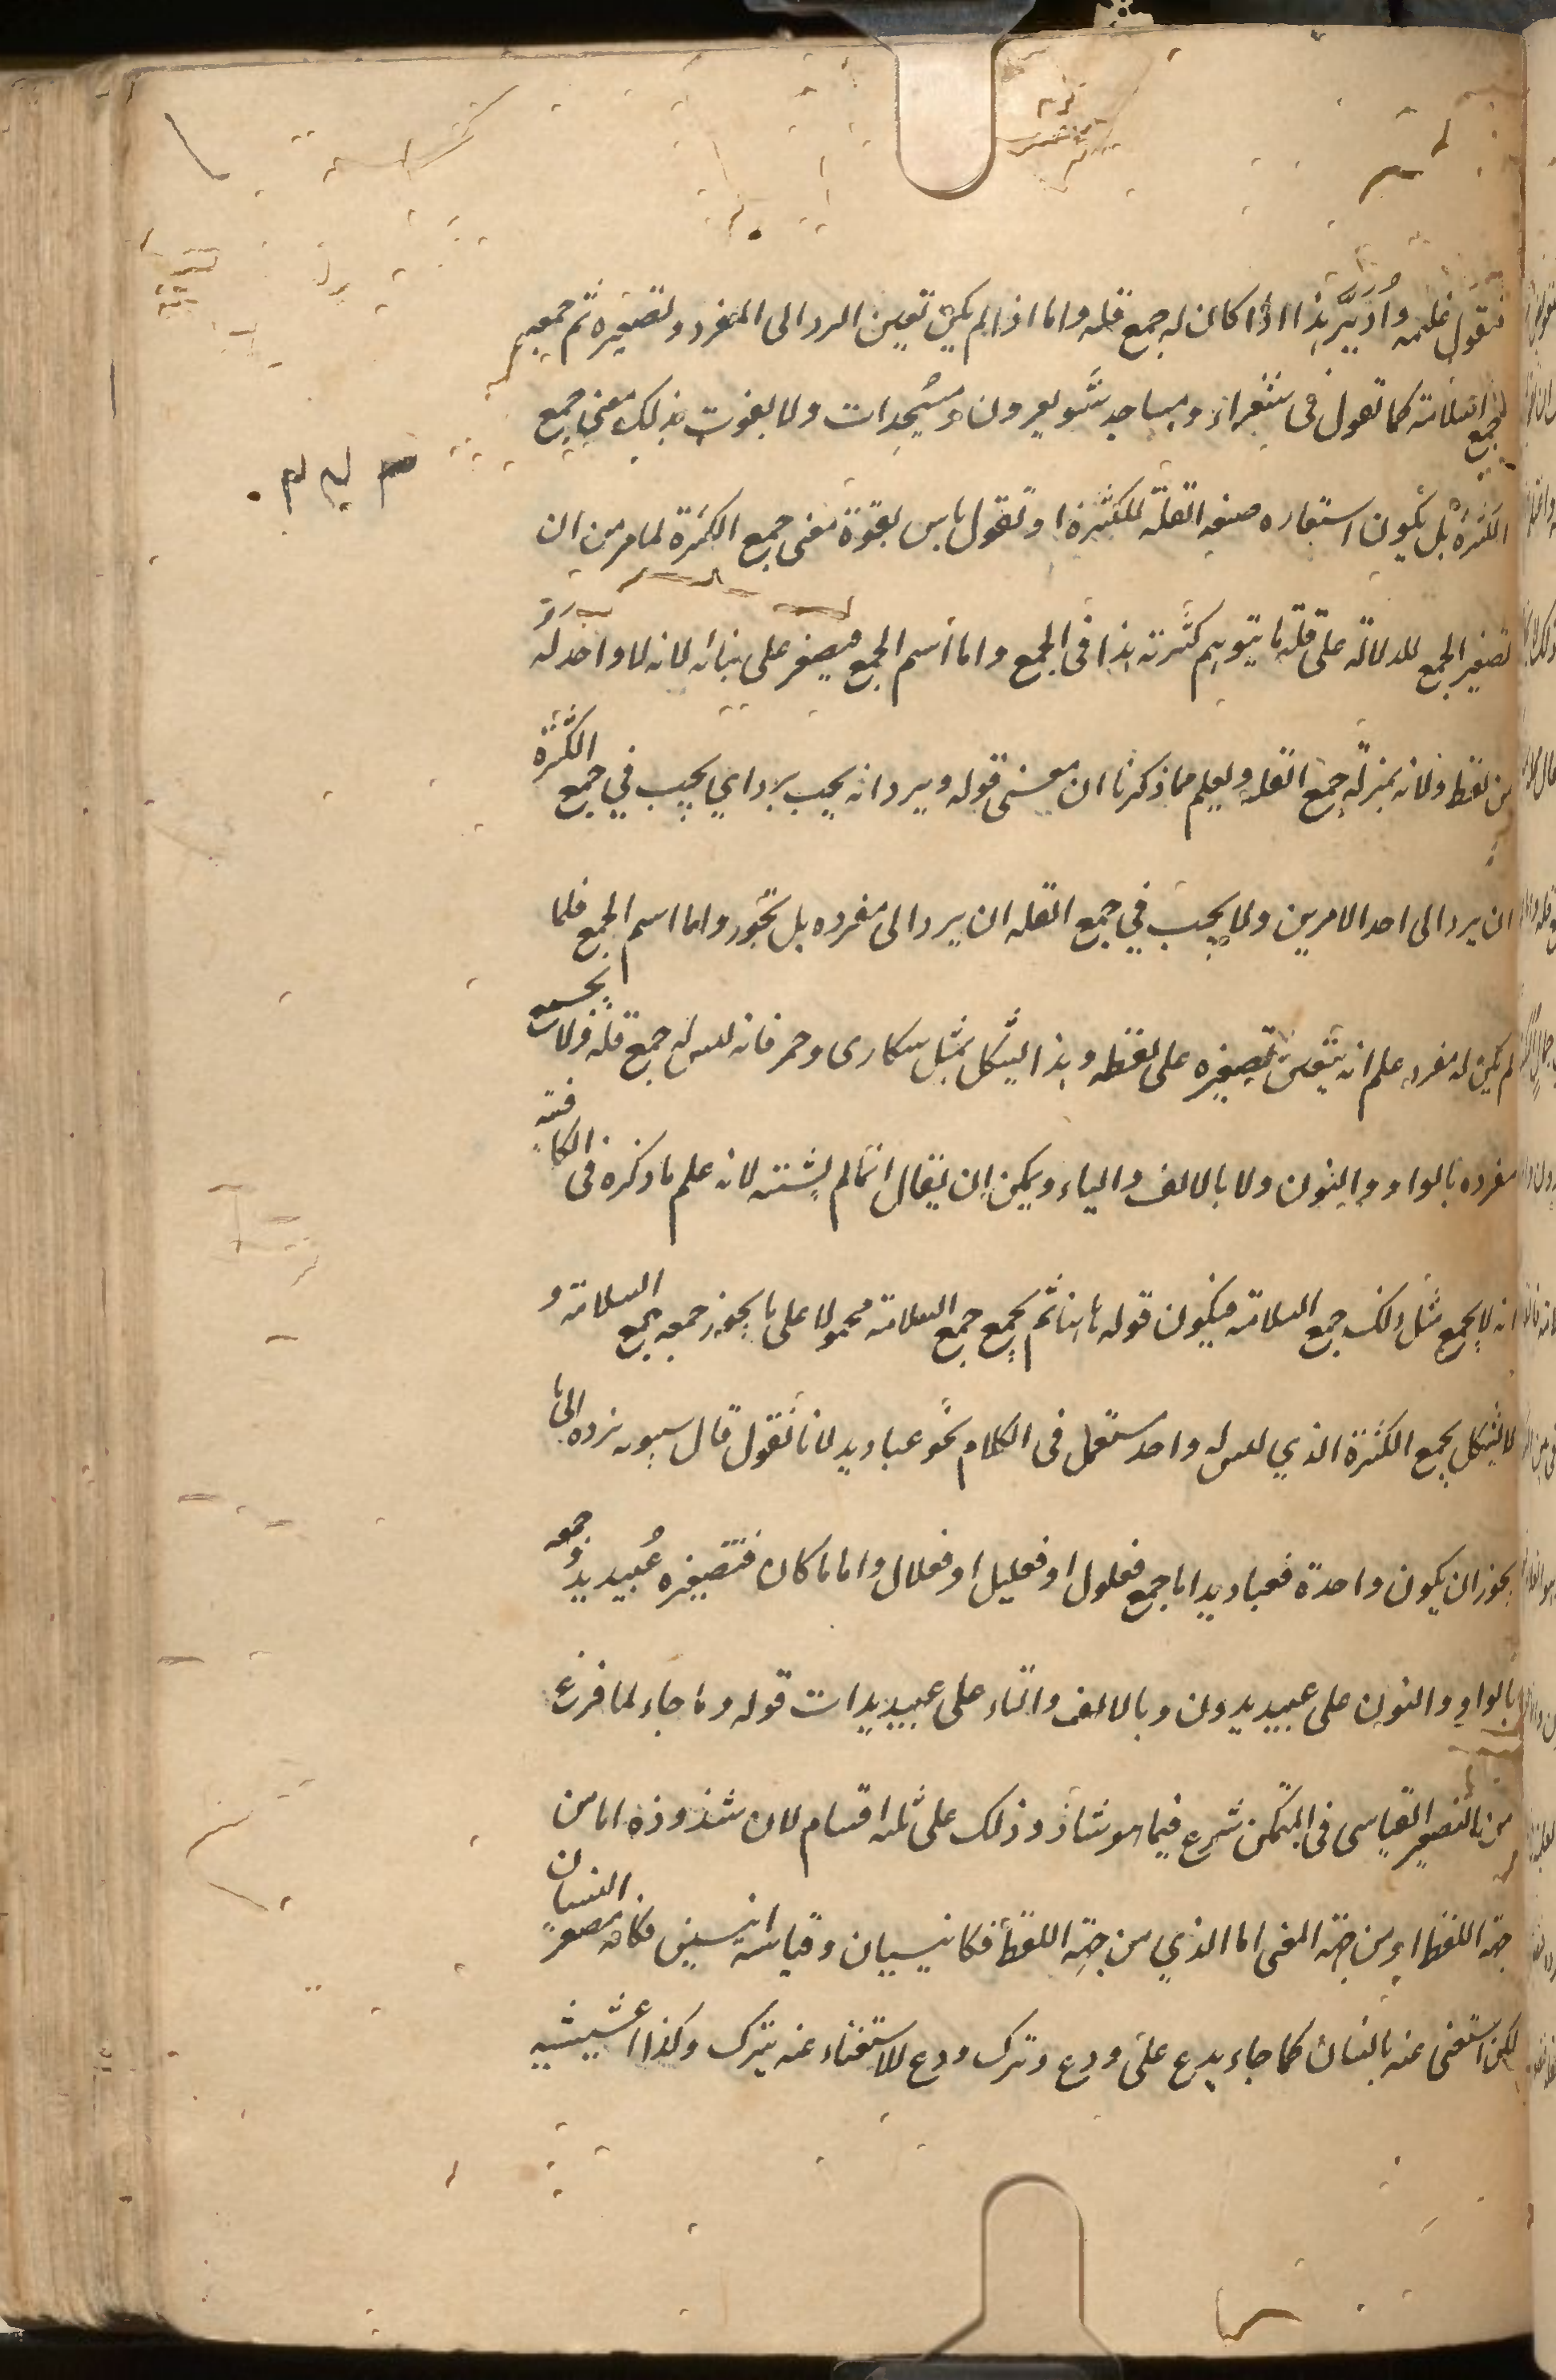 فتقول غليمه واُدَيِّر هذا اذا كان له جمع قله واما اذا لم يكن تعين الرد الى المفرد وتصغيره ثم جمعه
جمع السلامة كما تقول فى شعراء ومساجد شويعرون ومسيجدات ولا يفوت بذلك معنى جمع
الكثرة بل يكون استعاره صيغه القلّة للكثرة او تقول باس بفوة معنى جمع الكثرة لما مر من ان
تصغير الجمع للدلالة على قلة ما يتوهم كثرته هذا فى الجمع واما اسم الجمع فيصغر على بنائه لانه لا واحد له
من لفظه ولانه بمنزلة جمع القله ويعلم مما ذكرنا ان معنى قوله ويرد انه يجب يرد اي يجب في جمع الكثرة
ان يرد الى احد الامرين ولا يجب في جمع القله ان يرد الى مفرده بل تجوز واما اسم الجمع فلما
لم يكن له مفرد علم انه يتعين تصغيره على لفظه وهذا يشكل بمثل سكارى وحمر فانه ليس له جمع قلة ولا يجمع
مفرده بالواو والنون ولا بالالف والياء ويمكن ان يقال انما لم يستثنه لانه علم ما ذكره فى الكافية
انه لا يجمع مثل ذلك جمع السلامة فيكون قوله هاهنا ثم يجمع جمع السلامة محمولا على ما يجوز جمعه جمع السلامة و
لا يشكل بجمع الكثرة الذي ليس له واحد مستعمل فى الكلام نحو عباديد لانا نقول قال سيبويه نرده الى ما
يجوز ان يكون واحدة فعباديد اما جمع فعلول او فعليل او فعلال واما ما كان فتصغيره عُبيديد وجمعه
بالواو والنون على عبيديدون وبالالف والتاء على عبيديدات قوله وما جاء لما فرغ
من التصغير القياسى فى المتمكن شرع فيما هو شاذ وذلك على ثلثه اقسام لان شذوذه اما من
جهة اللفظ او من جهة المعنى اما الذي من جهة اللفظ فكانيسيان وقياسه انيسين فكانه مصغر انسيان
لكن استغنى عنه بانسان كما جاء يدع على ودع وترك ودع للاستغناء عنه بترك وكذا عشيشيه